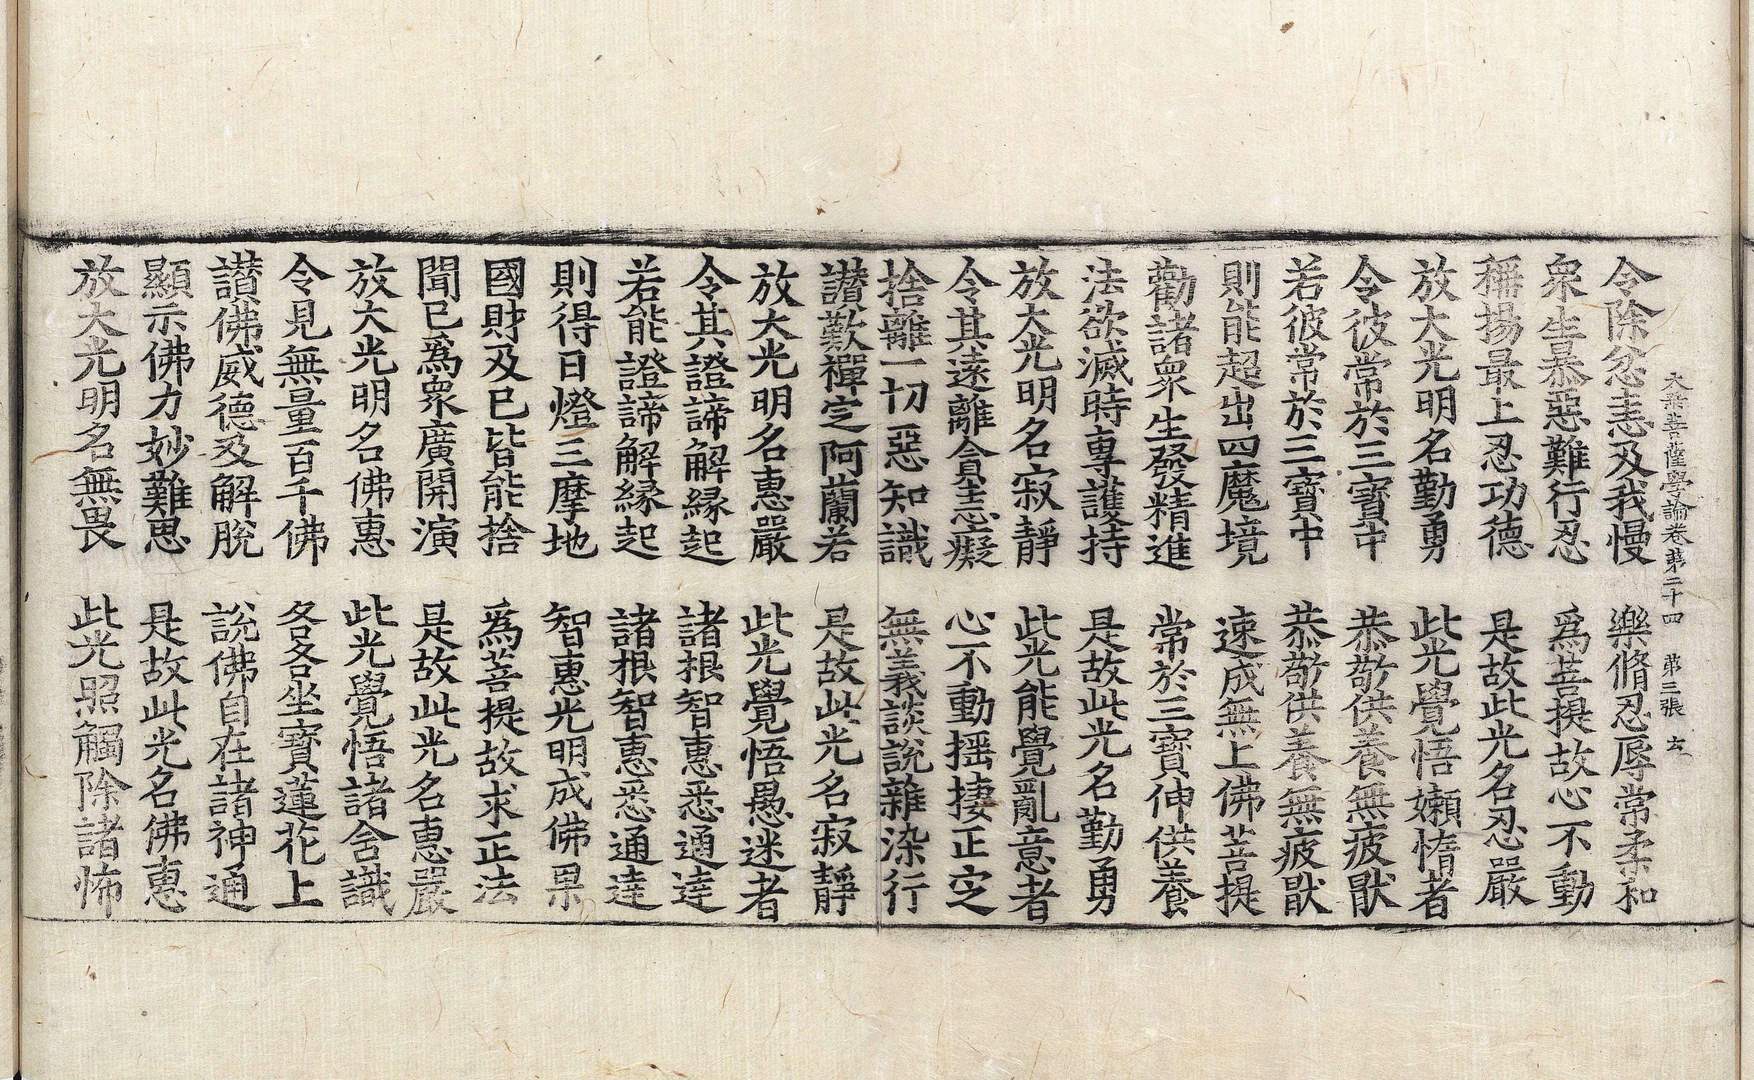 大乘菩薩學論卷第二十四　第三張　㐬
令除忿恚及我慢　樂脩忍辱常柔和
衆生暴惡難行忍　為菩提故心不動
稱揚最上忍功德　是故此光名忍嚴
放大光明名勤勇　此光覺悟嬾惰者
令彼常於三寶中　恭敬供養無疲猒
若彼常於三寶中　恭敬供養無疲猒
則能超出四魔境　速成無上佛菩提
勸諸衆生發精進　常於三寶伸供養
法欲滅時專護持　是故此光名勤勇
放大光明名寂靜　此光能覺亂意者
令其遠離貪恚癡　心不動揺捿正定
捨離一切惡知識　無義談說雜染行
讃歎禪定阿蘭若　是故此光名寂靜
放大光明名惠嚴　此光覺悟愚迷者
令其證諦解縁起　諸根智惠悉通達
若能證諦解縁起　諸根智惠悉通達
則得日燈三摩地　智惠光明成佛果
國財及已皆能捨　為菩提故求正法
聞已為衆廣開演　是故此光名惠嚴
放大光明名佛惠　此光覺悟諸含識
令見無量百千佛　各各坐寶蓮花上
讃佛威德及解脫　說佛自在諸神通
顯示佛力妙難思　是故此光名佛惠
放大光明名無畏　此光照觸除諸怖